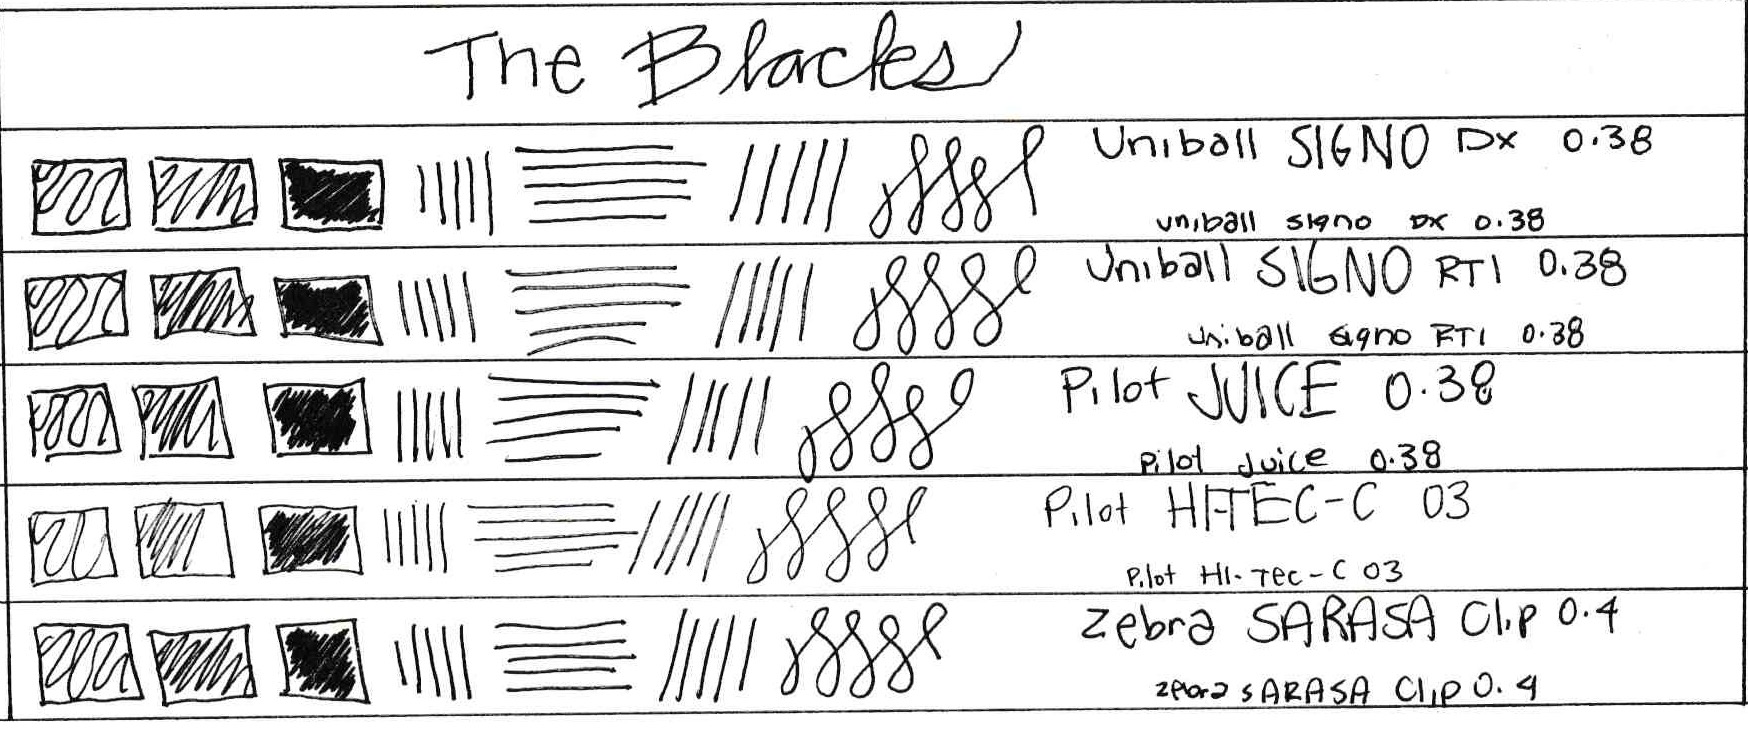 The Blacks
Uniball SIGNO DX 0.38
uniball signo DX 0.38
Uniball SIGNO RT1 0.38
uniball signo RT1 0.38
Pilot JUICE 0.38
Pilot Juice 0.38
Pilot HI-TEC-C 03
Pilot HI-TEC-C 03
Zebra SARASA Clip 0.4
zebra SARASA Clip 0.4